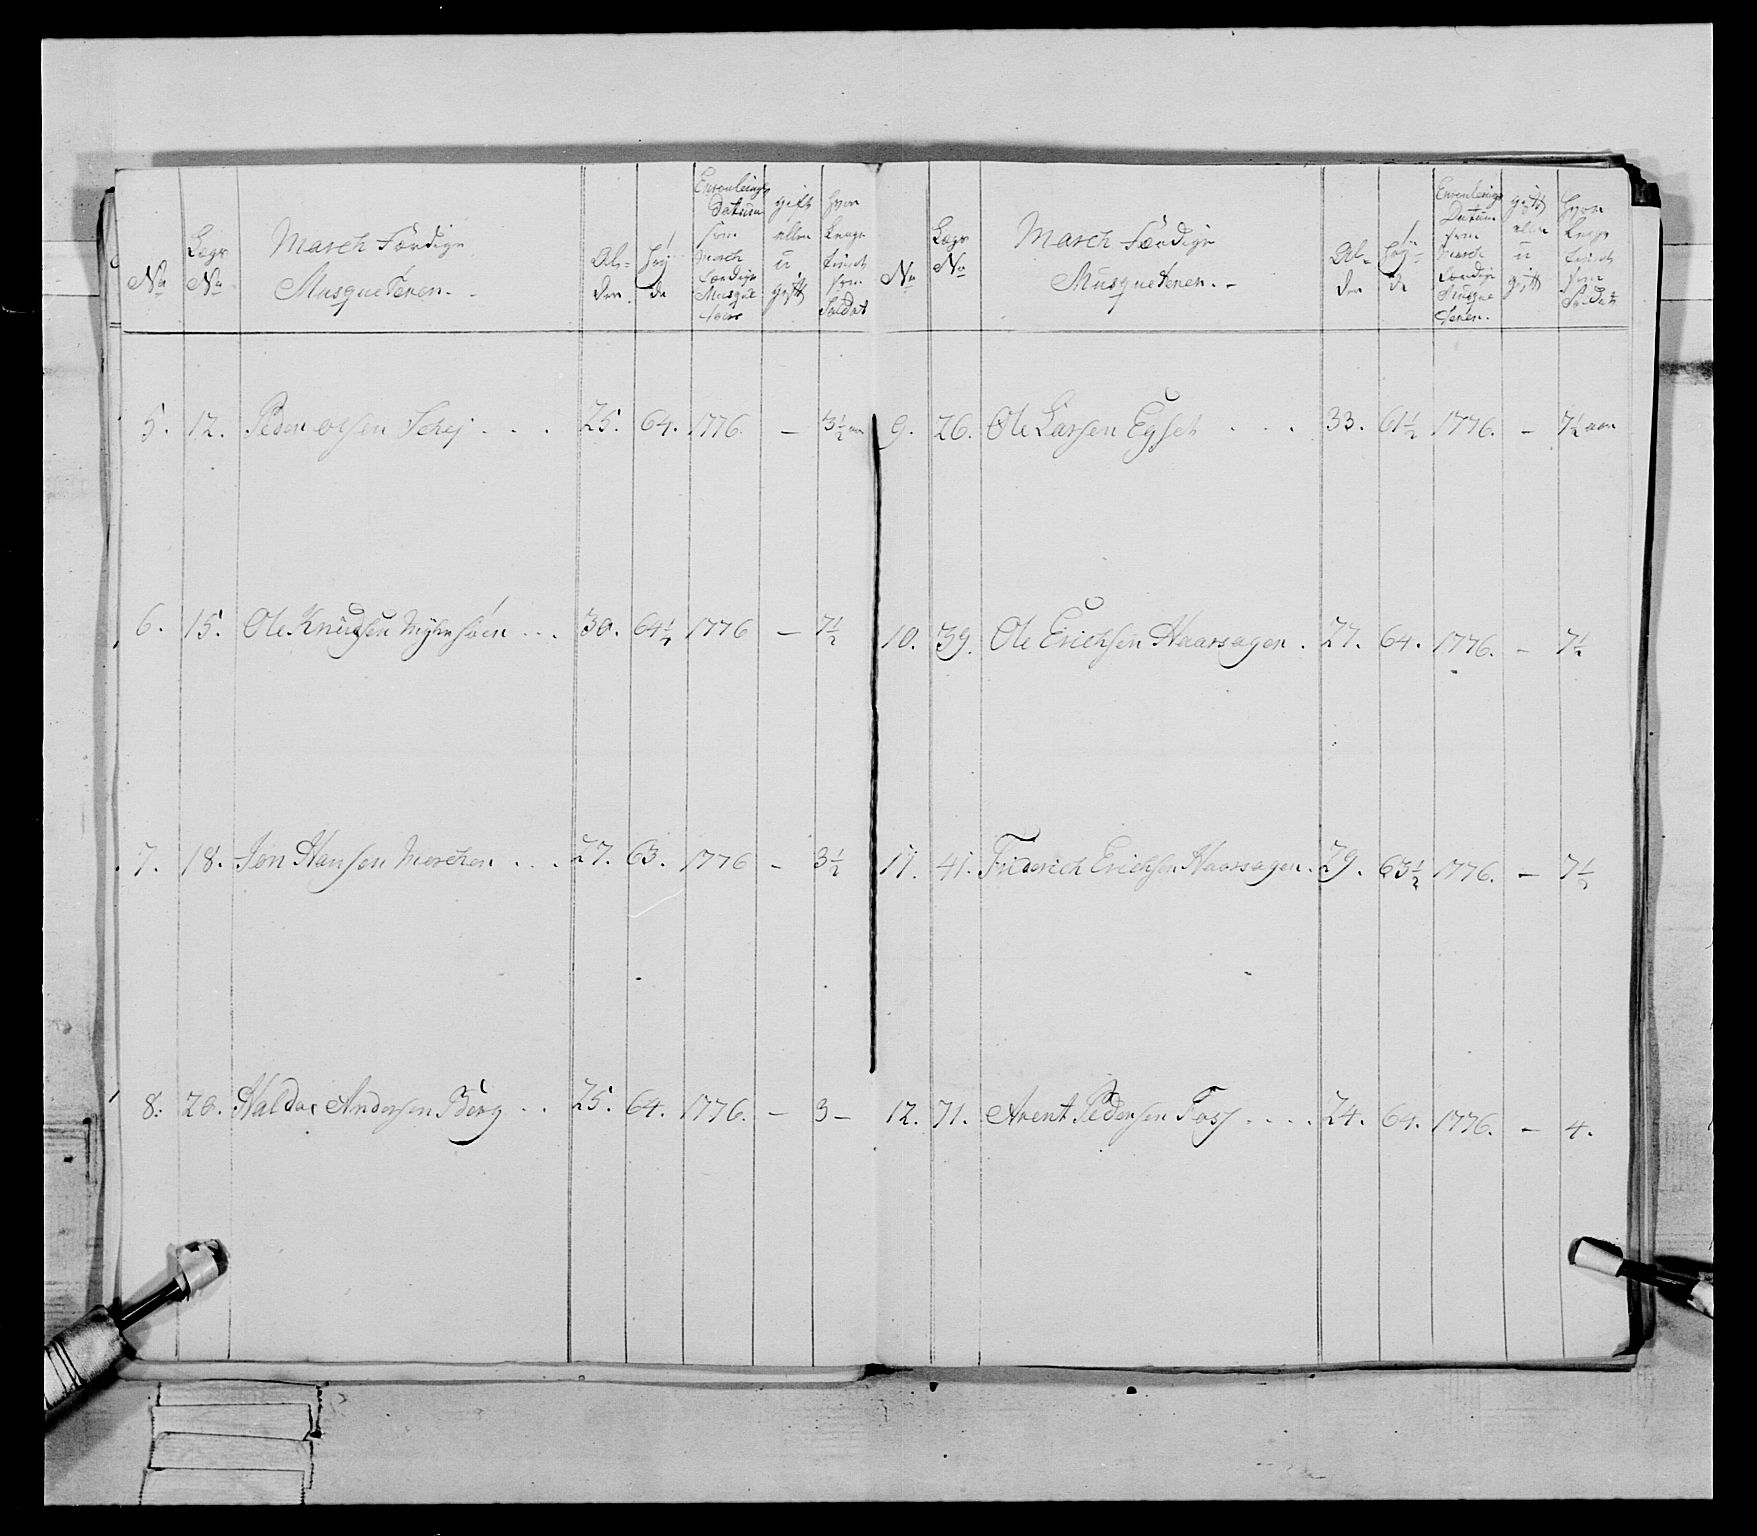 No
Lægs No
March Færdige
Musqueterer.
Al-
der.
Høy
de
Enroulerings
Datum
som
March
Færdige
Musque
terer
gift
eller
u
gift
hvor
Længe
tient
som
Soldat
5. 12. Peder Olsen Schej . . . 25. 64. 1776. — 3½ aar
6. 15. Ole Knudsen Myhrsöen . . . 30. 64½ 1776 — 7½
7. 18. Jon Hansen Merchen . . . 27. 63. 1776 — 3½
8. 20. Haldor Andersen Berg . . 25. 64. 1776. — 3 —
No
Lægs
No
March Færdige
Musqueterer. -
Al-
der
Høy-
de
Enroulerings
Datum
som
March
Færdige
Musque
terer.
gift
eller
u
gift
hvor
Længe
tient
som
Soldat
9. 26. Ole Larsen Egset . . . 33. 61½ 1776. — 7½ aar
10. 39. Ole Erichsen Haarsagen . 27. 64. 1776. — 7½
11. 41. Friderich Erichsen Haarsagen . 29. 63½ 1776. — 7½
12. 71. Arent Pedersen Foss . . . . 24. 64. 1776. — 4.